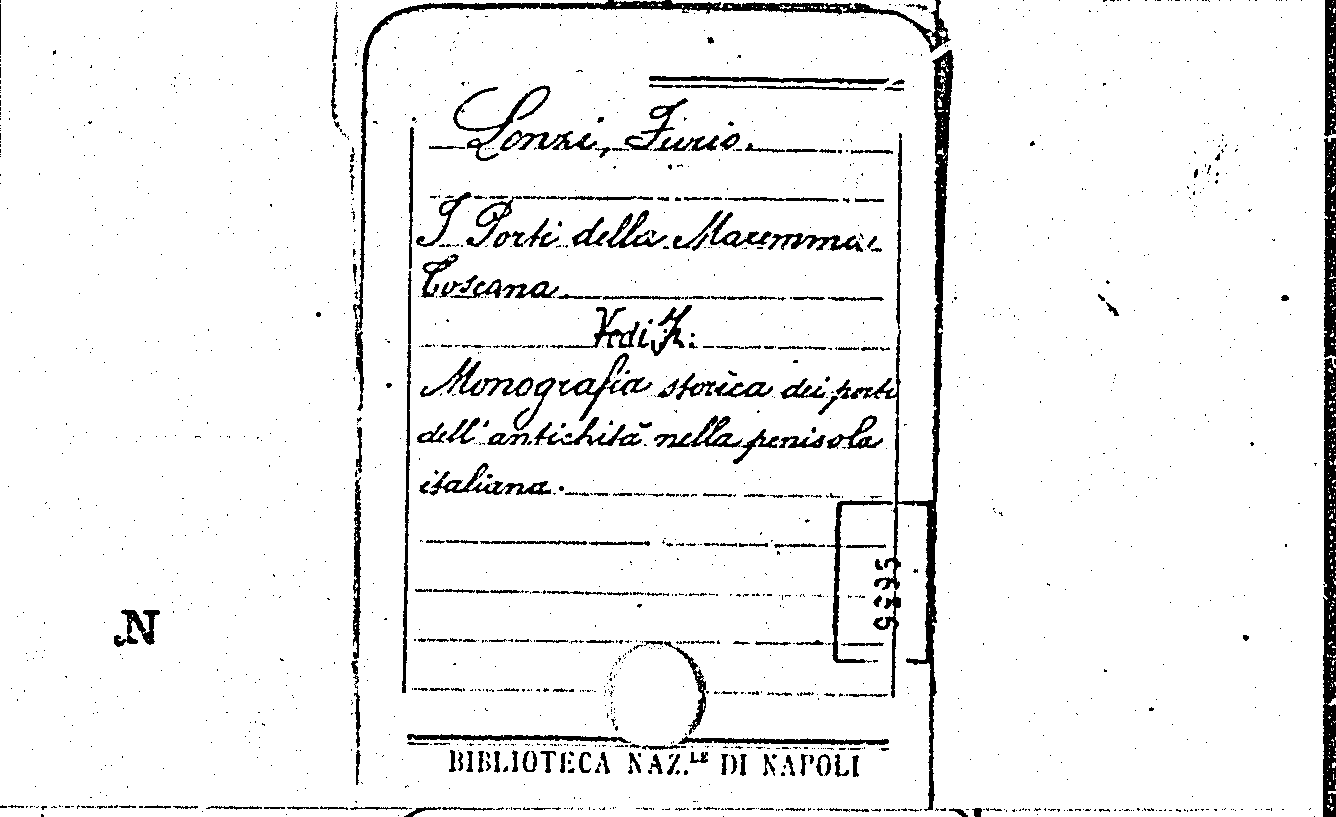 Lonzi, Furio.
I Porti della Maremma
Toscana
Vedi
Monografia storica dei porti
dell'antichità nella penisola
italiana.
N
BIBLIOTECA NAZ.LE DI NAPOLI